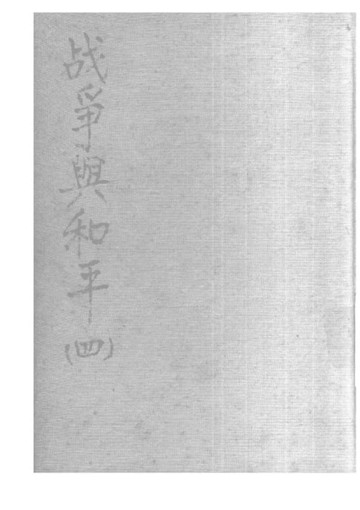 战爭與和平
(四)